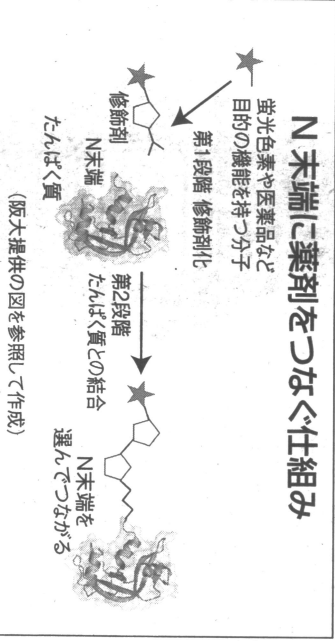 N末端に薬剤をつなぐ仕組み
蛍光色素や医薬品など
目的の機能を持つ分子
第1段階 修飾剤化
修飾剤
N末端
たんぱく質
第2段階
たんぱく質との結合
N末端を
選んでつながる
(阪大提供の図を参照して作成)